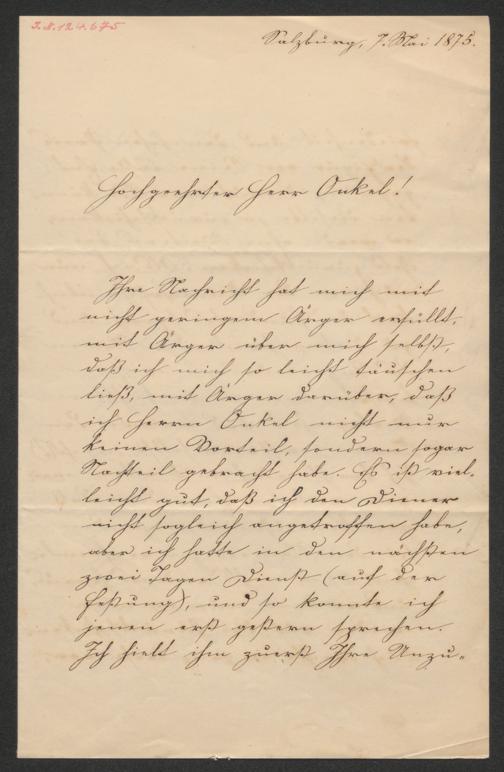 I.N. 124.675
Salzburg, 7. Mai 1875.
Hochgeehrter Herr Onkel!
Ihre Nachricht hat mich mit
nicht geringem Ärger erfüllt,
mit Ärger über mich selbst,
daß ich mich so leicht täuschen
ließ, mit Ärger darüber, daß
ich Herrn Onkel nicht nur
keinen Vorteil, sondern sogar
Nachteil gebracht habe. Es ist viel-
leicht gut, daß ich den Diener
nicht sogleich angetroffen habe,
aber ich hatte in den nächsten
zwei Tagen Dienst (auf der
Festung), und so konnte ich
jenen erst gestern sprechen.
Ich hielt ihm zuerst Ihre Unzu-